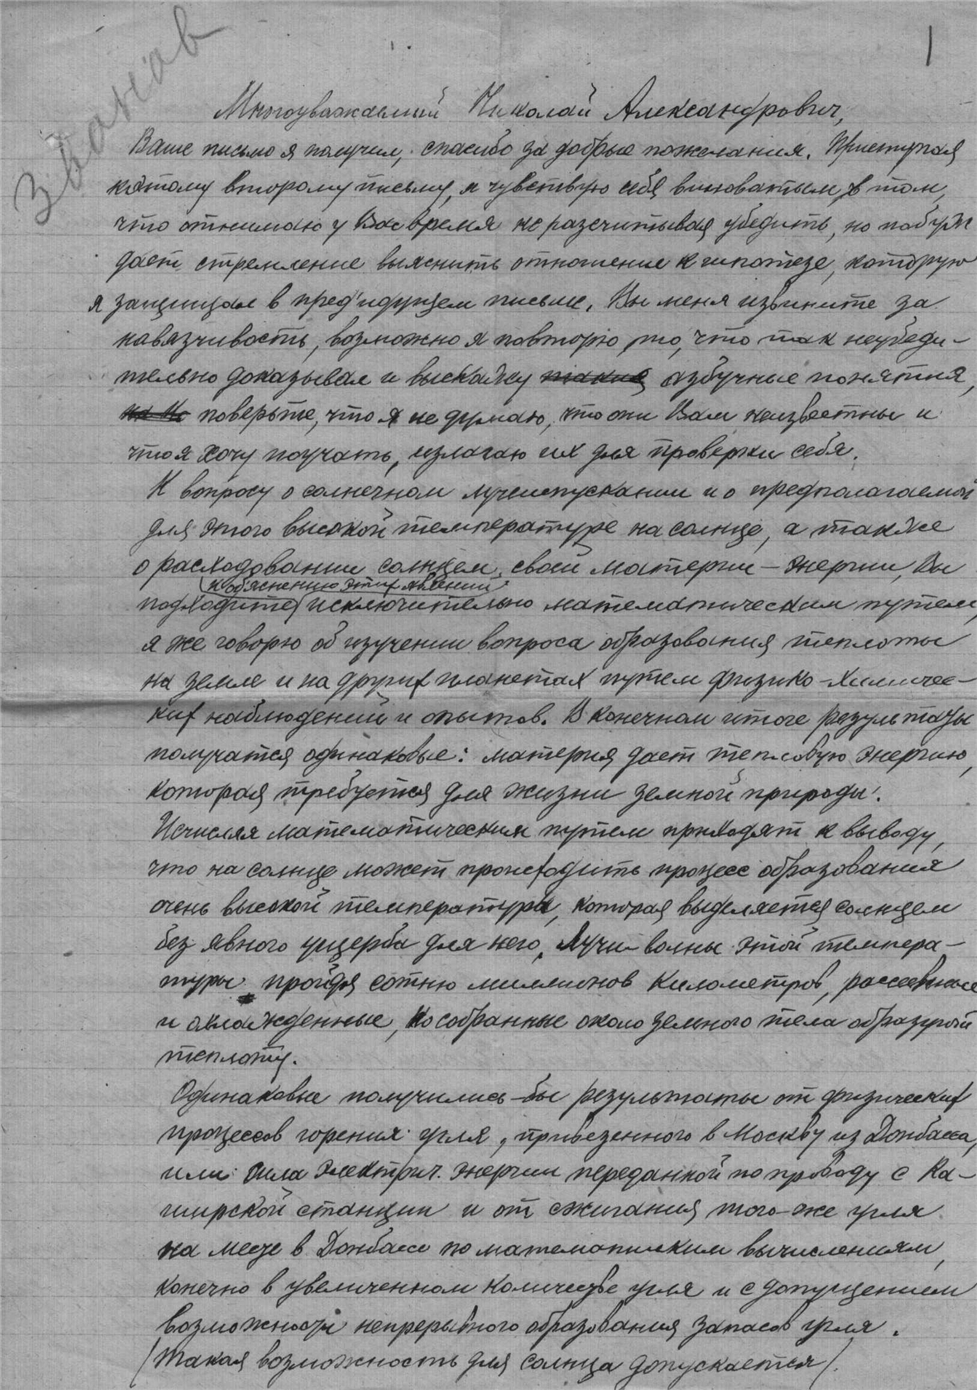 1
Многоуважаемый Николай Александрович,
Ваше письмо я получил, спасибо за добрые пожелания. Приступая
к этому второму письму, я чувствую себя виноватым в том,
что отнимаю у Вас время не разсчитывая убедить, но побуж
дает стремление выяснить отношение к гипотезе, которую
я защищал в пред'идущем письме. Вы меня извините за
навязчивость, возможно я повторю то, что так неубеди-
тельно доказывал и выскажу азбучные понятия,
поверьте, что я не думаю, что они Вам неизвестны и
что я хочу поучать, излагаю их для проверки себя.
К вопросу о солнечном лучеиспускании и о предполагаемой
для этого высокой температуре на солнце, а также
о расходовании солнцем своей материи – энергии, Вы
к объяснению этих явлений
подходите исключительно математическим путем,
я же говорю об изучении вопроса образования теплоты
на земле и на других планетах путем физико-химичес-
ких наблюдений и опытов. В конечном итоге результаты
получатся одинаковые: материя дает тепловую энергию,
которая требуется для жизни земной природы.
Исчисляя математическим путем приходят к выводу,
что на солнце может происходить процесс образования
очень высокой температуры, которая выделяется солнцем
без явного ущерба для него. Лучи-волны этой темпера-
туры пройдя сотню миллионов километров, рассеянные
и охлажденные, но собранные около земного тела образуют
теплоту.
Одинаковые получились-бы результаты от физических
процессов горения угля, привезенного в Москву из Донбасса,
или сила электрич. энергии переданной по проводу с Ка-
ширской станции и от сжигания того-же угля
на месте в Донбассе по математическим вычислениям,
конечно в увеличенном количестве угля и с допущением
возможности непрерывного образования запасов угля.
(такая возможность для солнца допускается).